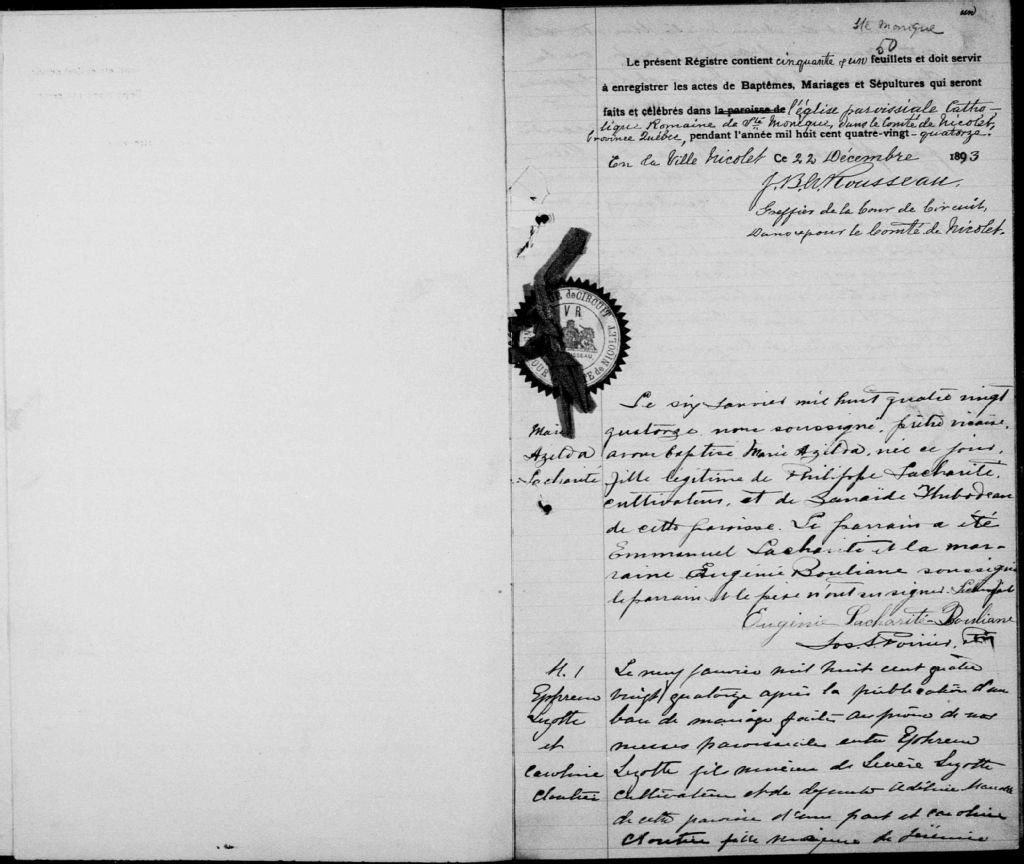 un
Ste Monique
50
Le présent Régistre contient cinquante & un feuillets et doit servir
à enregistrer les actes de Baptêmes, Mariages et Sépultures qui seront
faits et célébrés dans la paroisse de l'église paroissiale Catho-
lique Romaine de Ste Monique, dans le Comté de Nicolet,
Province Québec, pendant l'année mil huit cent quatre-vingt-quatorze.
En la Ville Nicolet Ce 22 Décembre 1893
J. B. Rousseau.
Greffier de la Cour de Circuit,
Dans & pour le Comté de Nicolet.
de CIRCUIT
V R
de NICOLET
Le six Janvier mil huit quatre vingt
quatorze nous soussigné, prêtre vicaire,
avons baptisé Marie Azilda, née ce jour,
fille légitime de Philippe Lacharité,
cultivateur, et de Zénaïde Thibodeau
de cette paroisse. Le parrain a été
Emmanuel Lacharité et la mar-
raine Eugénie Bouliane soussignée
le parrain et le père n'ont su signer.
Eugénie Lacharité Bouliane
Jos. Poirier, Ptre
Marie
Azilda
Lacharité
M. 1
Ephrem
Lozotte
et
Caroline
Cloutier
Le neuf Janvier mil huit cent quatre
vingt quatorze après la publication d'un
ban de mariage faite au prône de nos
messes paroissiales entre Ephrem
Lozotte fils mineur de Sévère Lozotte
cultivateur et de défunte Adéline
de cette paroisse d'une part et Caroline
Cloutier fille majeure de Jérémie